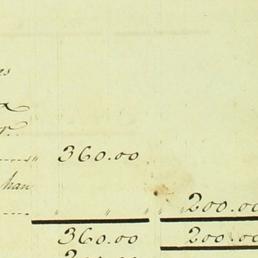 es
r.
360.00
han
200.00
360.00 200.00